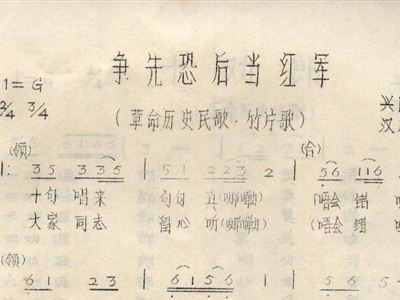 争先恐后当红军
1=G
2/4 3/4
(革命历史民歌·竹片歌)
兴
汉
(领) (合)
35 335 | 51 223 2 | 56 116
十句 唱来 句句 真(哪嘞) (唔会 错
大家 同志 留心 听(哪嘞) (唔会 错
(领)
61 23 | 6156 | 5